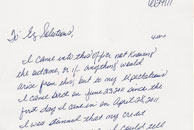 To: Ez Solutions,
I came into this Office not Knowing
the outcome, or if anything would
arise from this, but to my Expectations
I came back on June 23, 2011 since the
first day I came in on April 20, 2011.
I was stunned that my Credit
could tell